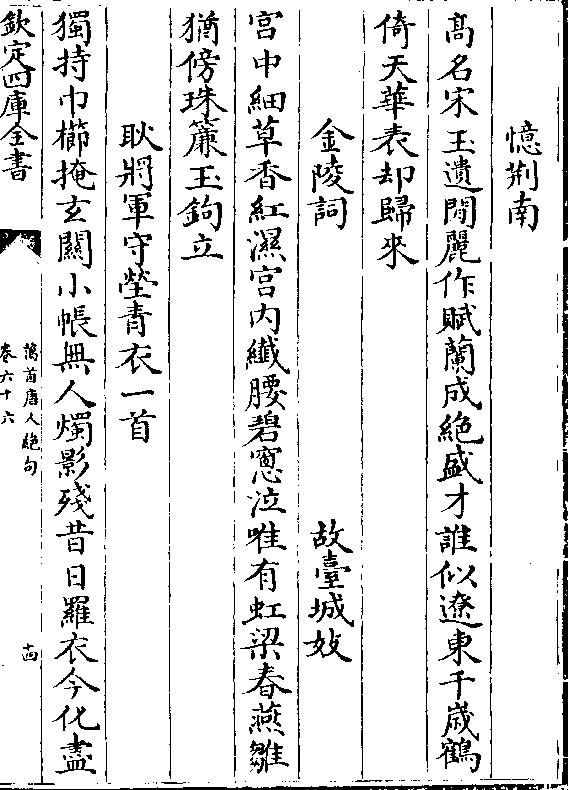 憶荆南
髙名宋玉遺閒麗作賦蘭成絶盛才誰似遼東千嵗鶴
倚天華表却歸來
金陵詞　故臺城妓
宫中細草香紅濕宫内纖腰碧窻泣唯有虹梁春燕雛
猶傍珠簾玉鉤立
耿將軍守塋青衣一首
獨持巾櫛掩玄關小帳無人燭影殘昔日羅衣今化盡
欽定四庫全書
萬首唐人絶句
卷六十六
十四